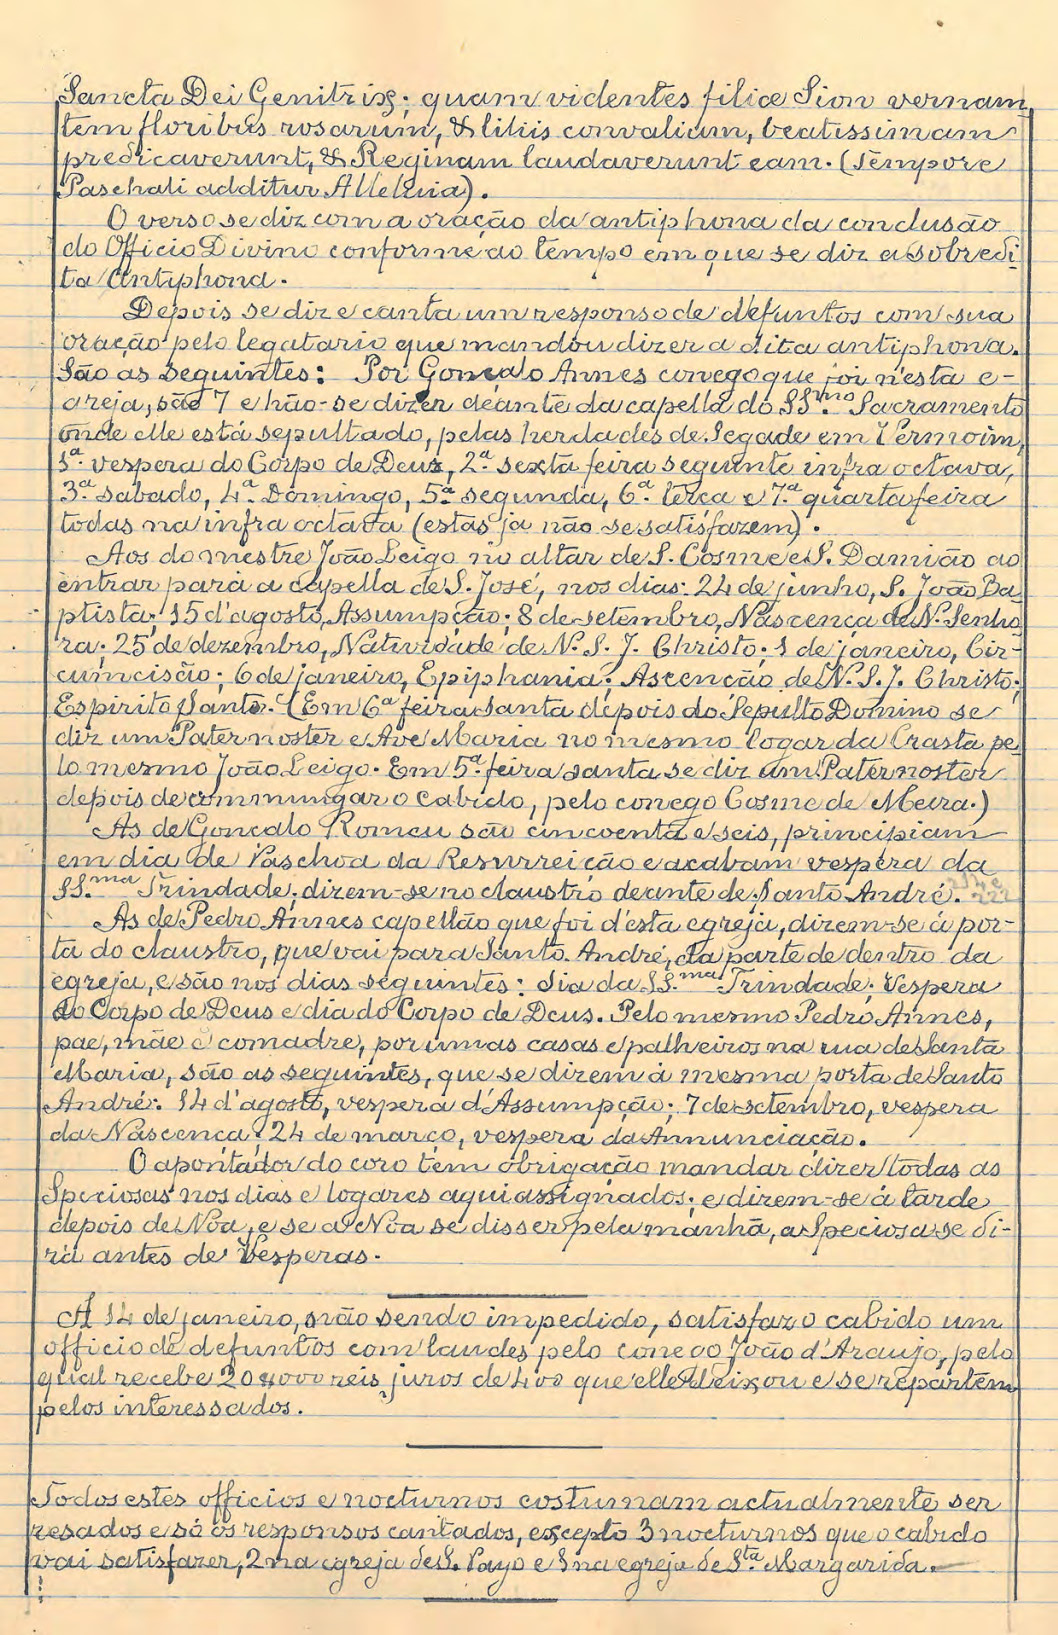 Sancta Dei Genitrix; quam videntes filiæ Sion vernan-
tem floribus rosarum, & liliis convalium, beatissimam
predicaverunt, & Reginam laudaverunt eam. (Tempore
Paschali additur Alleluia).
O verso se diz com a oração da antiphona da conclusão
do Officio Divino conforme ao tempo em que se diz a sobredi-
ta Antiphona.
Depois se diz e canta um responso de defuntos com sua
oração pelo legatario que mandou dizer a dita antiphona.
São as seguintes: Por Gonçalo Annes conego que foi n'esta e-
greja, são 7 e hão-se dizer deante da capella do SS.mo Sacramento
onde elle está sepultado, pelas herdades de Segade em Vermoim,
1ª. vespera do Corpo de Deus, 2ª. sexta feira seguinte infra octava,
3ª. sabado, 4ª. Domingo, 5ª. segunda, 6ª. terça e 7ª. quarta feira
todas na infra octava (estas já não se satisfazem).
Aos do mestre João Leigo no altar de S. Cosme e S. Damião ao
entrar para a capella de S. José, nos dias: 24 de junho, S. João Ba-
ptista; 15 d'agosto, Assumpção; 8 de setembro, Nascença de N. Senho-
ra; 25 de dezembro, Natividade de N. S. J. Christo; 1 de janeiro, Cir-
cumcisão; 6 de janeiro, Epiphania; Ascenção de N. S. J. Christo;
Espirito Santo. (Em 6ª feira santa depois do Sepulto Domino se
diz um Pater noster e Ave Maria no mesmo logar da Crasta pe-
lo mesmo João Leigo. Em 5ª. feira santa se diz um Pater noster
depois de commungar o cabido, pelo conego Cosme de Meira.)
As de Gonçalo Romeu são cincoenta e seis, principiam
em dia de Paschoa da Resurreição e acabam vespera da
SS.ma Trindade; dizem-se no claustro deante de Santo André.
As de Pedro Annes capellão que foi d'esta egreja, dizem-se á por-
ta do claustro, que vai para Santo André, da parte de dentro da
egreja, e são nos dias seguintes: dia da SS.ma Trindade; Vespera
do Corpo de Deus e dia do Corpo de Deus. Pelo mesmo Pedro Annes,
pae, mãe e comadre, por umas casas e palheiros na rua de Santa
Maria, são as seguintes, que se dizem á mesma porta de Santo
André: 14 d'agosto, vespera d'Assumpção; 7 de setembro, vespera
da Nascença; 24 de março, vespera da Annunciação.
O apontador do coro tem obrigação mandar dizer todas as
Speciosas nos dias e logares aqui assignados; e dizem-se á tarde
depois de Noa, e se a Noa se disser pela manhã, a Speciosa se di-
rá antes de Vesperas.
A 14 de janeiro, não sendo impedido, satisfaz o cabido um
officio de defuntos com laudes pelo conego João d'Araujo, pelo
qual recebe 20$000 reis, juros de 400 que elle deixou e se repartem
pelos interessados.
Todos estes officios e nocturnos costumam actualmente ser
resados e só os responsos cantados, excepto 3 nocturnos que o cabido
vai satisfazer, 2 na egreja de S. Payo e 1 na egreja de S.ta Margarida.